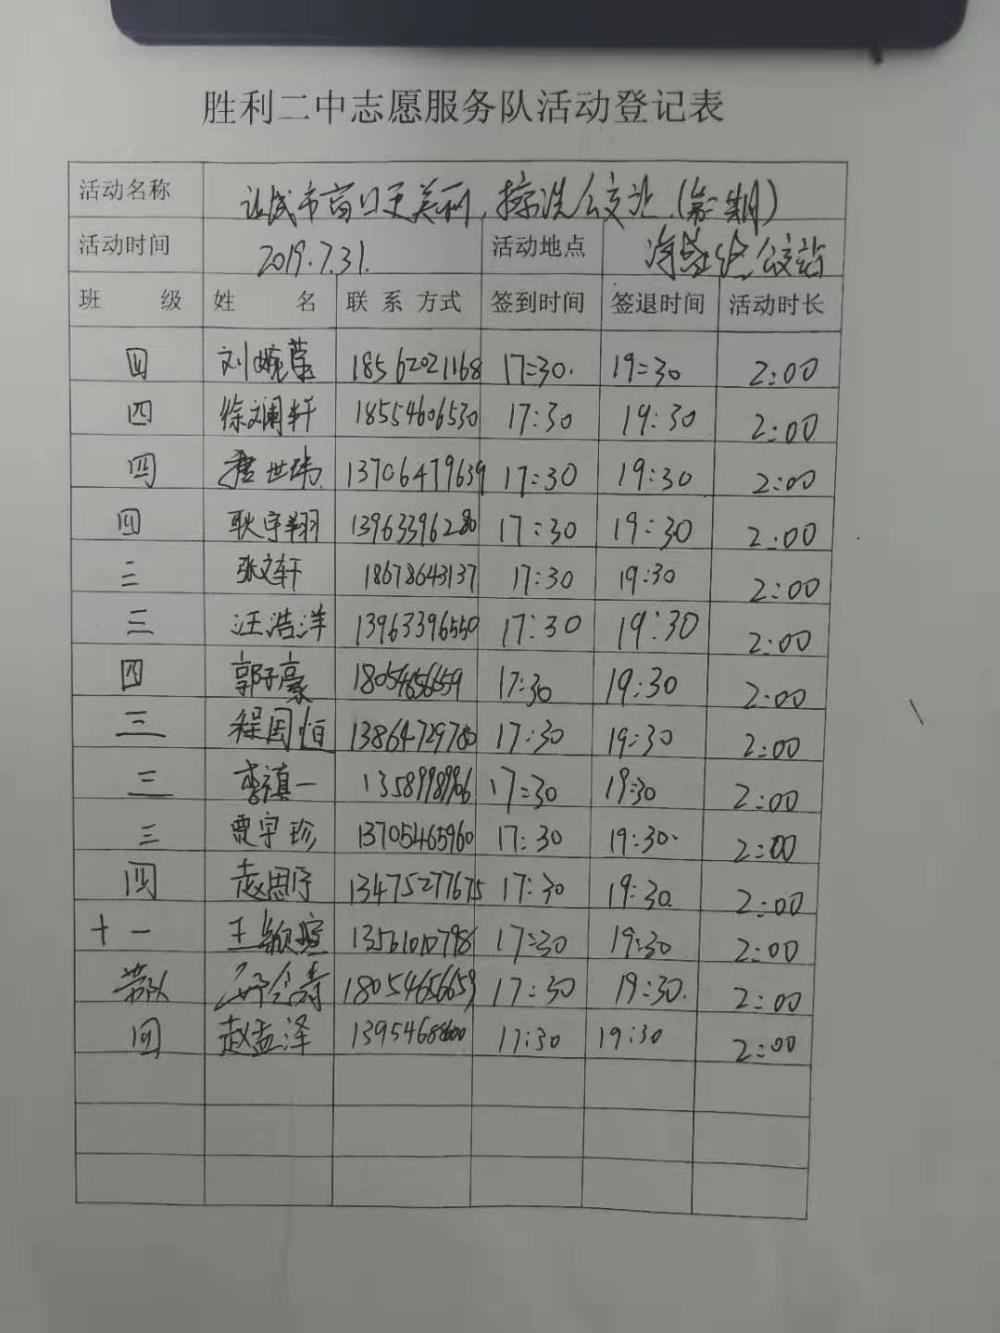 胜利二中志愿服务队活动登记表
活动名称 让城市窗口更美丽,擦洗公交站(第一期)
活动时间 2019.7.31. 活动地点 公交站
班 级 姓 名 联系方式 签到时间 签退时间 活动时长
四 刘婉莹 18562021168 17:30. 19:30 2:00
四 徐斓轩 18554606530 17:30 19:30 2:00
四 世玮 13706479639 17:30 19:30 2:00
四 耿宇翔 13963396280 17:30 19:30 2:00
二 张文轩 18678643137 17:30 19:30 2:00
三 汪浩洋 13963396550 17:30 19:30 2:00
四 郭子豪 18054656659 17:30 19:30 2:00
三 程国恒 13864729780 17:30 19:30 2:00
三 李禛一 13589989906 17:30 19:30 2:00
三 贾宇珍 13705465960 17:30 19:30. 2:00
四 赵思宇 13475277675 17:30 19:30. 2:00
十一 王颖 13561010798 17:30 19:30 2:00
带队 18054656659 17:30 19:30. 2:00
四 赵孟泽 13954688600 17:30 19:30 2:00